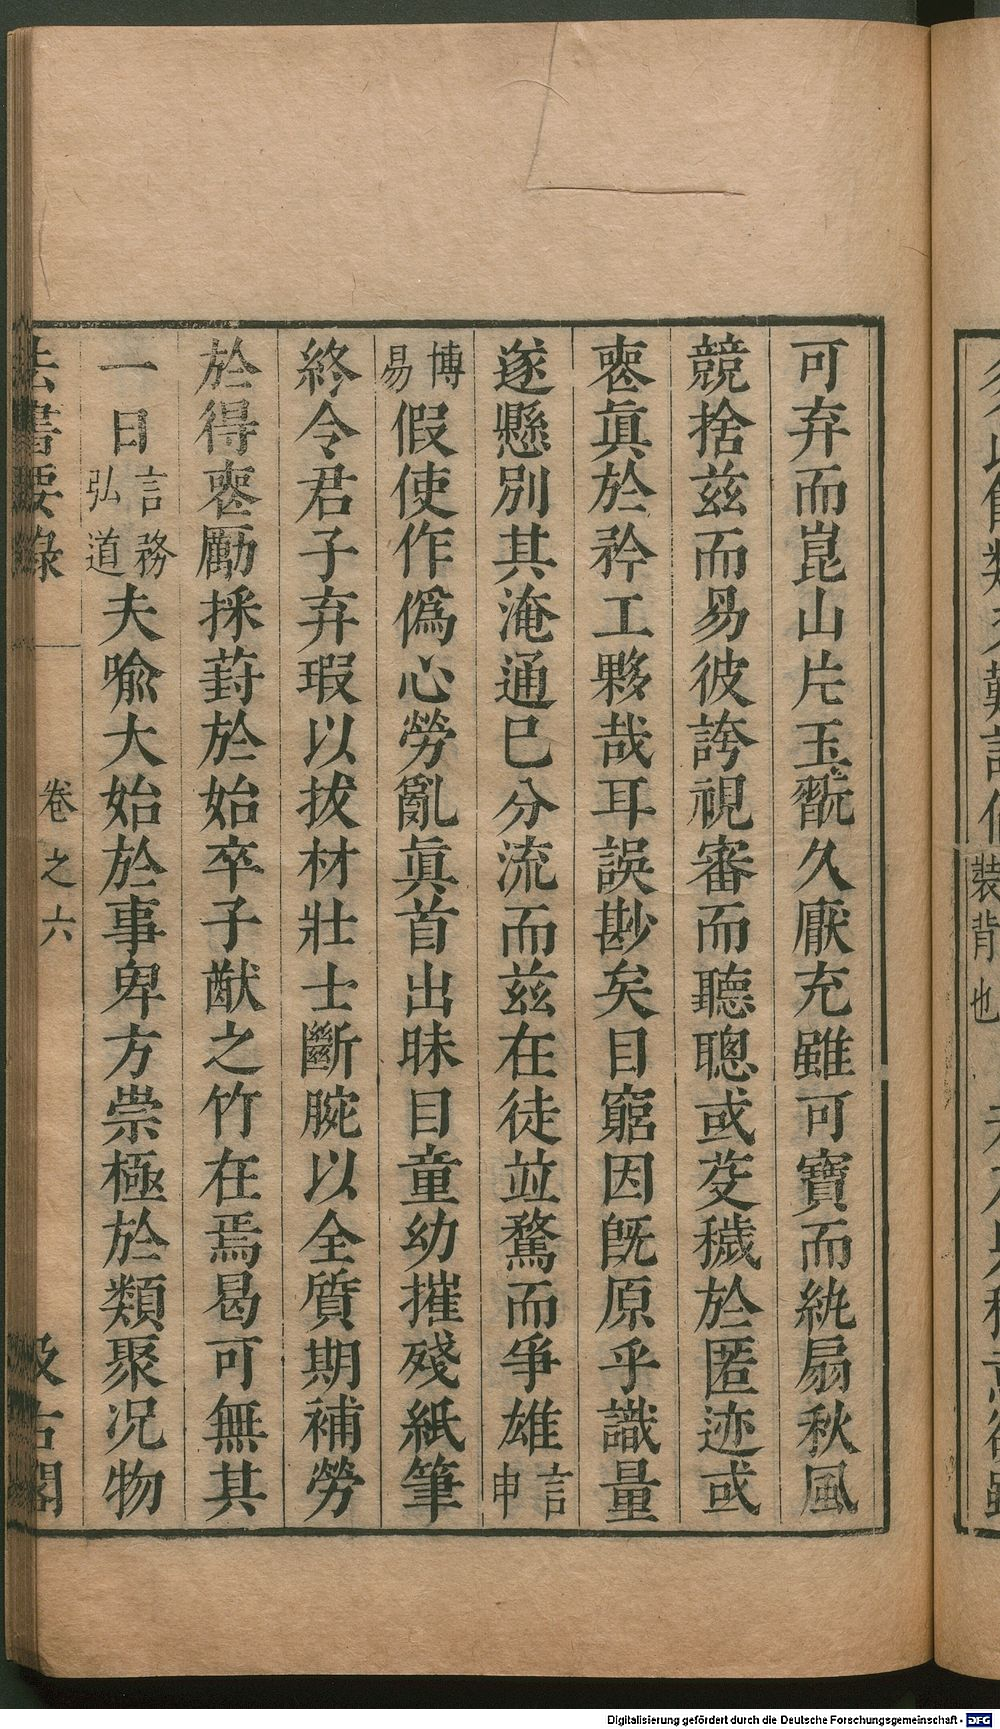 可弃而崑山片玉翫久厭充雖可寶而紈扇秋風
競捨茲而易彼誇視審而聽聰或芟穢於匿迹或
喪眞於矜工夥哉耳誤尠矣目窮因旣原乎識量
遂懸別其淹通已分流而茲在徒竝騖而爭雄言申
博易假使作僞心勞亂眞首出昧目童幼摧殘紙筆
終令君子弃瑕以拔材壯士斷腕以全質期補勞
於得喪勵採葑於始卒子猷之竹在焉曷可無其
一日言務弘道夫喩大始於事卑方崇極於類聚况物
法書要錄 卷之六 汲古閣
裝背也
Digitalisierung gefördert durch die Deutsche Forschungsgemeinschaft - DFG